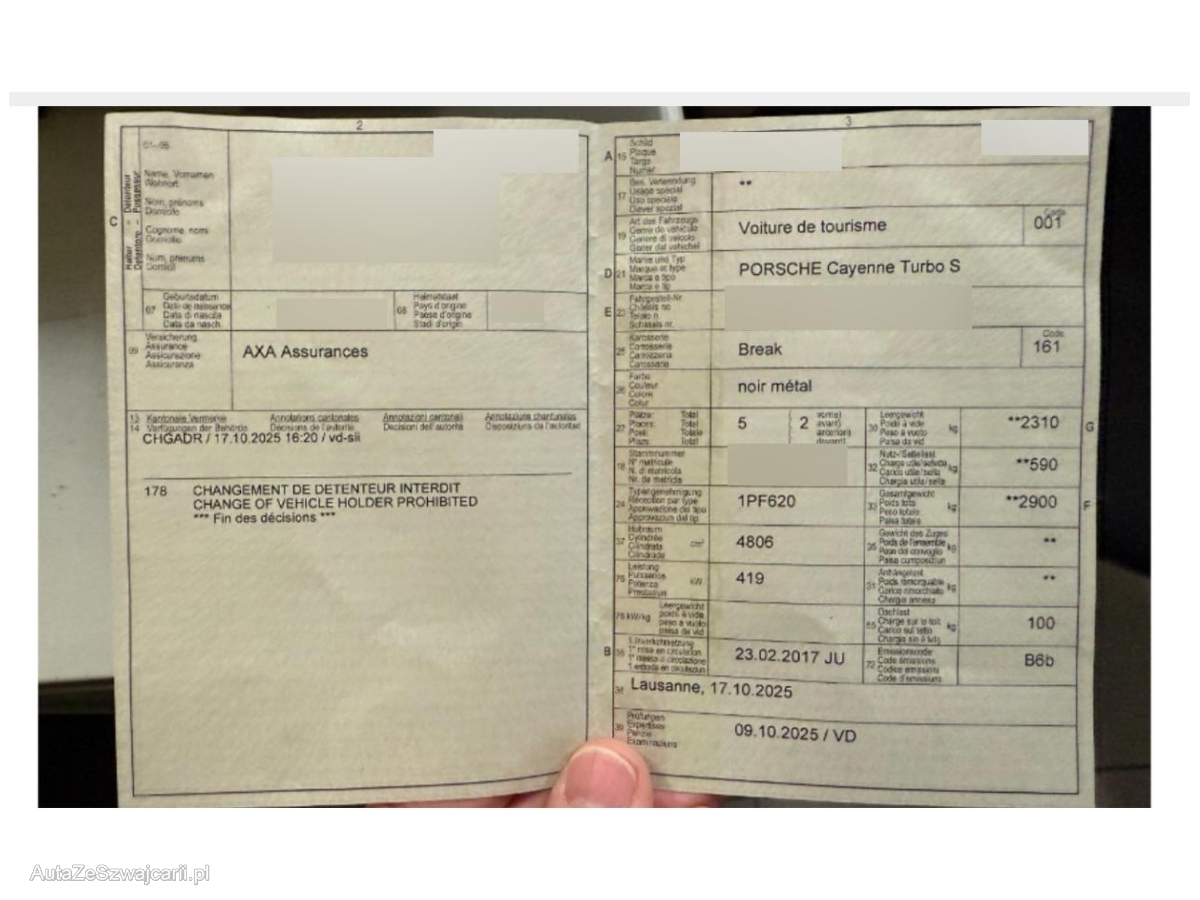 2
01–06
C
Halter – Détenteur
Detentore – Possessur
Name, Vornamen
Wohnort
Nom, prénoms
Domicile
Cognome, nomi
Domicilio
Num, prenums
Domicil
07
Geburtsdatum
Date de naissance
Data di nascita
Data da nasch.
08
Heimatstaat
Pays d'origine
Paese d'origine
Stadi d'origin
09
Versicherung
Assurance
Assicurazione
Assicuranza
AXA Assurances
13 Kantonale Vermerke Annotations cantonales Annotazioni cantonali Annotaziuns chantunales
14 Verfügungen der Behörde Décisions de l'autorité Decisioni dell'autorità Disposiziuns da l'autoritad
CHGADR / 17.10.2025 16:20 / vd-sii
178 CHANGEMENT DE DETENTEUR INTERDIT
CHANGE OF VEHICLE HOLDER PROHIBITED
*** Fin des décisions ***
3
A 15
Schild
Plaque
Targa
Numer
17
Bes. Verwendung
Usage spécial
Uso speciale
Diever spezial
**
19
Art des Fahrzeugs
Genre de véhicule
Genere di veicolo
Gener dal vehichel
Voiture de tourisme
Code
001
D 21
Marke und Typ
Marque et type
Marca e tipo
Marca e tip
PORSCHE Cayenne Turbo S
E 23
Fahrgestell-Nr.
Châssis no
Telaio n.
Schassis nr.
25
Karosserie
Carrosserie
Carrozzeria
Carossaria
Break
Code
161
26
Farbe
Couleur
Colore
Colur
noir métal
27
Plätze: Total
Places: Total
Posti: Totale
Plazs: Total
5
( 2 vorne)
avant)
anteriori)
davant)
30
Leergewicht
Poids à vide kg
Peso a vuoto
Paisa da vid
**2310
G
18
Stammnummer
N° matricule
N. di matricola
Nr. da matricla
32
Nutz-/Sattellast
Charge utile/sellette kg
Carico utile/sella
Chargia utila/sella
**590
24
Typengenehmigung
Réception par type
Approvazione del tipo
Approvaziun dal tip
1PF620
33
Gesamtgewicht
Poids total kg
Peso totale
Paisa totala
**2900
F
37
Hubraum
Cylindrée cm³
Cilindrata
Cilindrada
4806
35
Gewicht des Zuges
Poids de l'ensemble kg
Peso del convoglio
Paisa cumposiziun
**
76
Leistung
Puissance kW
Potenza
Prestaziun
419
31
Anhängelast
Poids remorquable kg
Carico rimorchiato
Chargia annexa
**
78 kW/kg
Leergewicht
poids à vide
peso a vuoto
paisa da vid
55
Dachlast
Charge sur le toit kg
Carico sul tetto
Chargia sin il tetg
100
B 36
1. Inverkehrsetzung
1re mise en circulation
1a messa in circolazione
1. entrada en circulaziun
23.02.2017 JU
72
Emissionscode
Code émissions
Codice emissioni
Code d'emissiuns
B6b
38 Lausanne, 17.10.2025
39
Prüfungen
Expertises
Perizie
Examinaziuns
09.10.2025 / VD
AutaZeSzwajcarii.pl